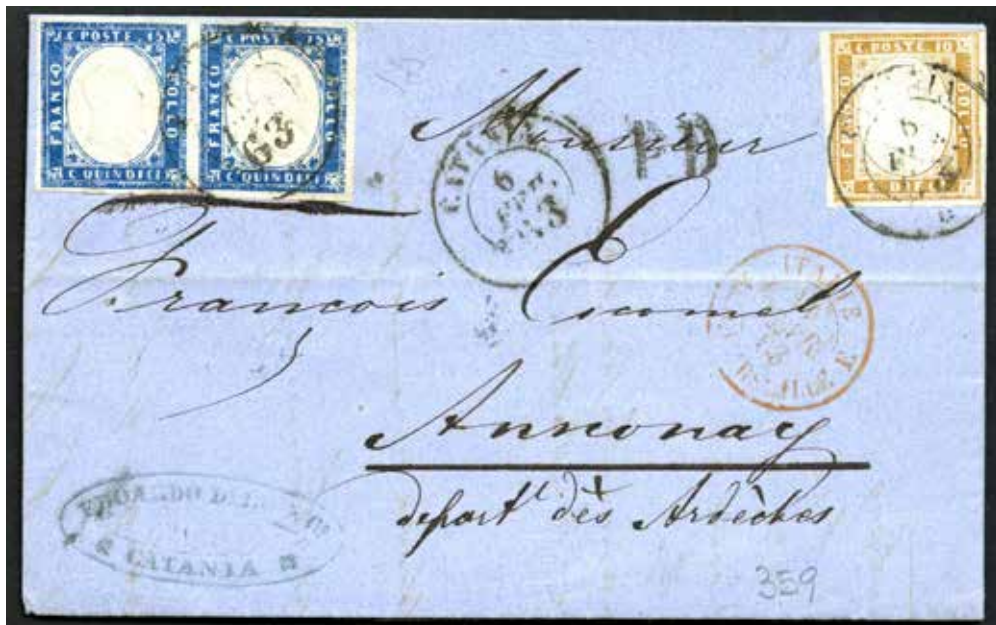 C. POSTE. 15
FRANCO
BOLLO
C. QUINDICI
C. POSTE. 15
FRANCO
BOLLO
C. QUINDICI
63
C. POSTE. 10
FRANCO
BOLLO
6
CATANIA
6
FEB.
63
PD
Monsieur
Francois
ITALIE
Annonay
depart.t dès Ardèches
EDOARDO
CATANIA
359